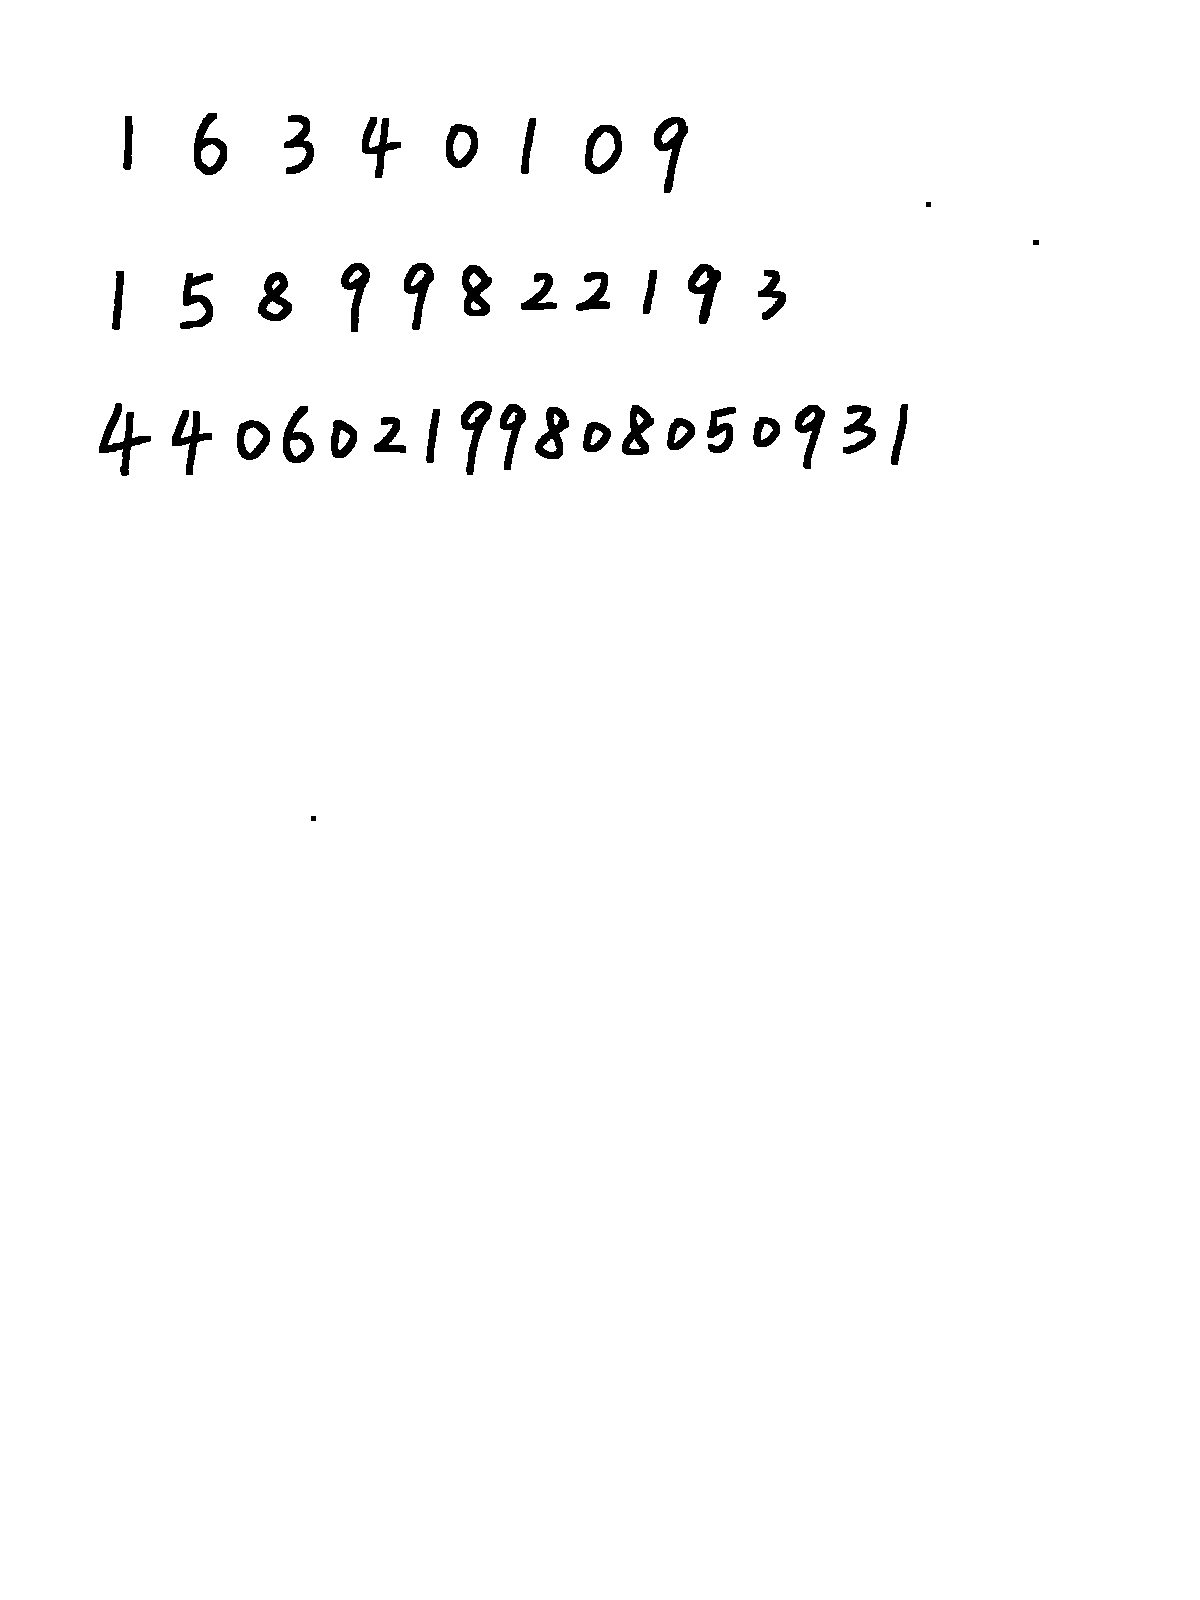 16340109
15899822193
440602199808050931